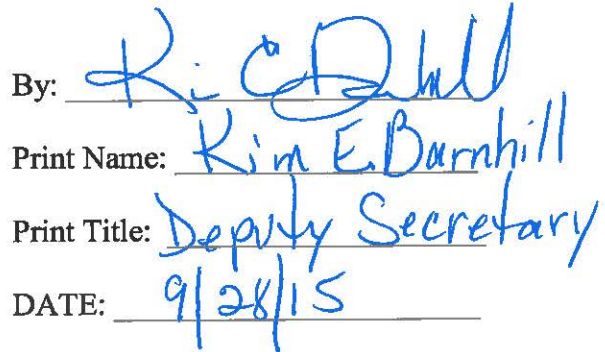 By: Kim E Barnhill
Print Name: Kim E. Barnhill
Print Title: Deputy Secretary
DATE: 9/28/15